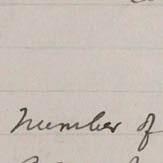 Number of